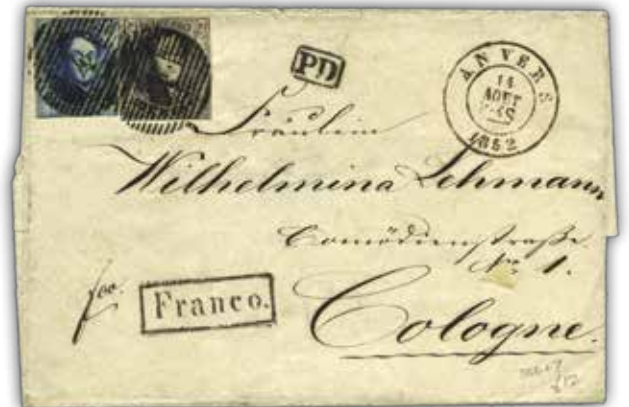 PD
ANVERS
14
AOUT
1852
Fräulein
Wilhelmina Lehmann
Comödienstraße
No 1.
fco.
Franco.
Cologne.